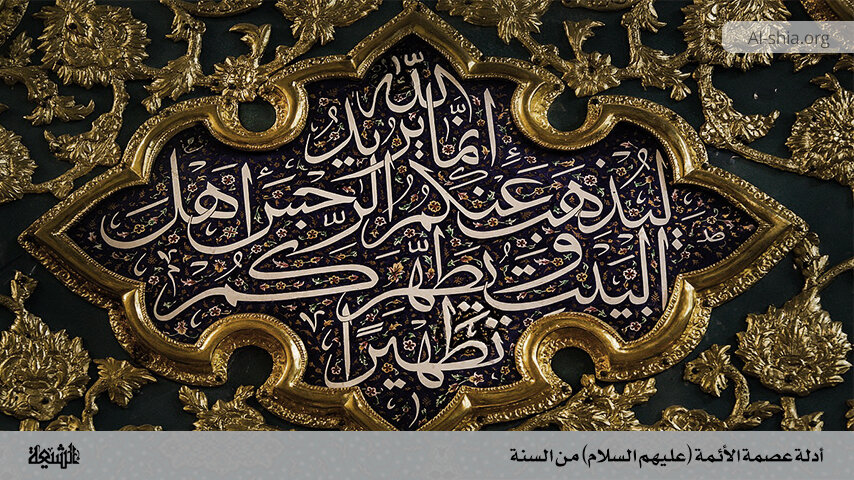 Al-shia.org
إنَّما يُريدُ اللّٰهُ
لِيُذهِبَ عَنكُمُ الرِّجسَ اَهلَ
البَيتِ وَ يُطَهِّرَكُم
تَطهيرًا
أدلة عصمة الأئمة (عليهم السلام) من السنة
الشيعة